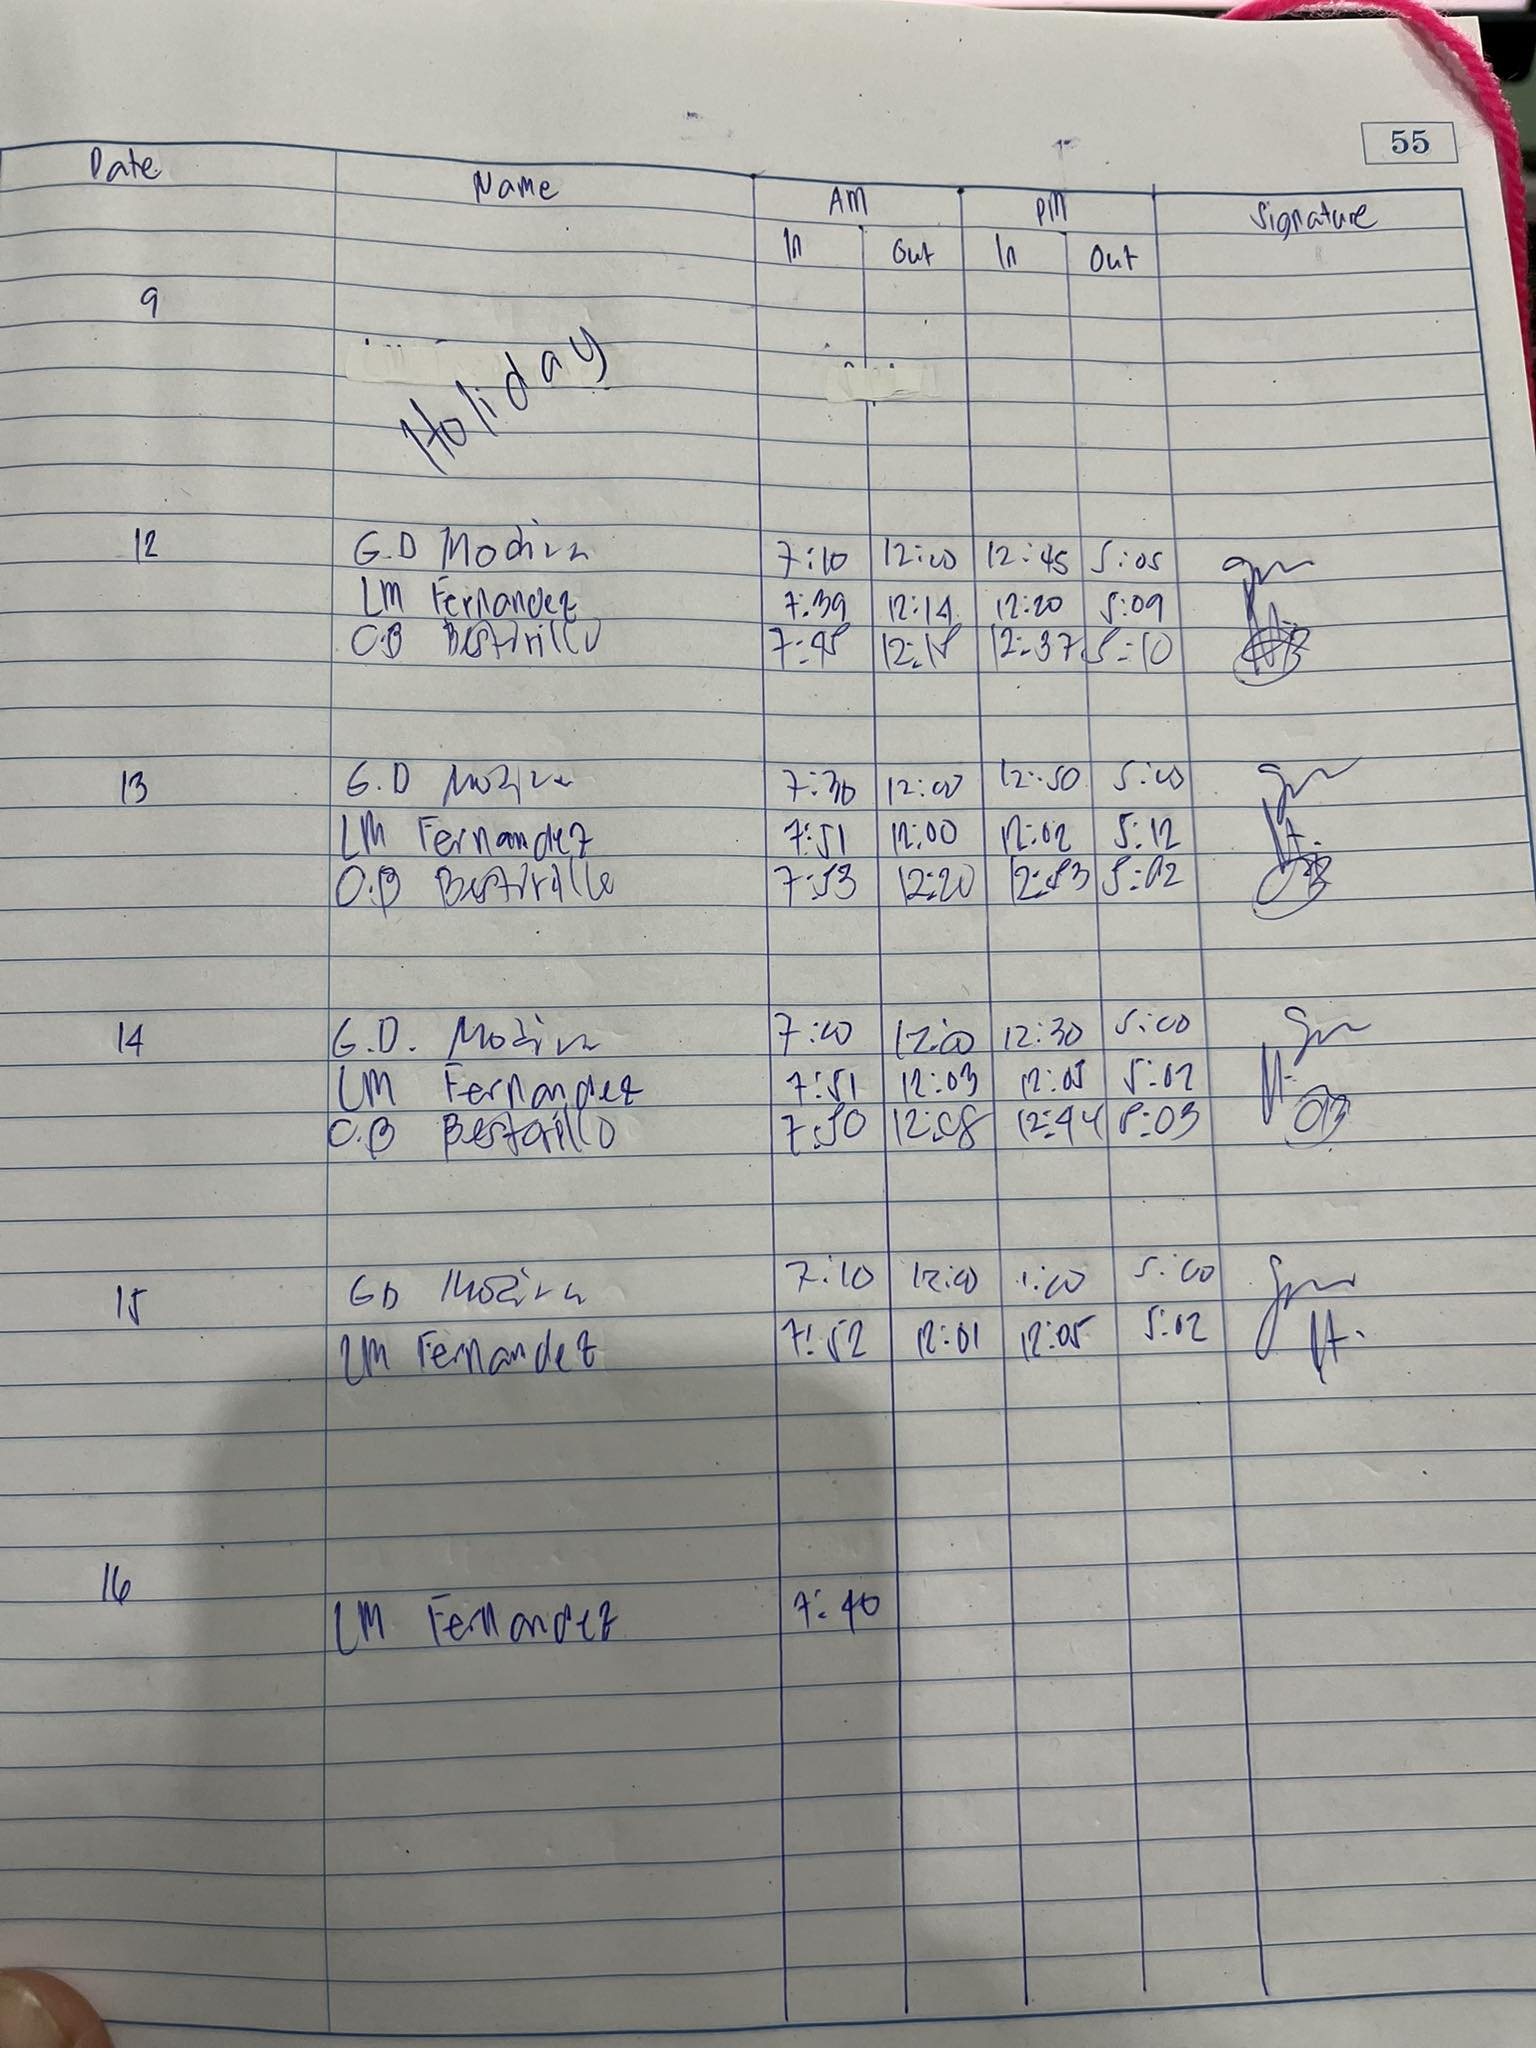 55
Date Name AM PM Signature
In Out In Out
9
Holiday
12 G.D 7:10 12:00 12:45 5:05
LM Fernandez 7:39 12:14 12:20 5:09
O.B Bestirillo 7:48 12:18 12:37 5:10
13 G.D 7:30 12:00 12:50 5:00
LM Fernandez 7:51 12:00 12:02 5:12
O.B Bestirillo 7:53 12:20 12:53 5:02
14 G.D. 7:00 12:00 12:30 5:00
LM Fernandez 7:51 12:03 12:05 5:02
O.B Bestirillo 7:50 12:08 12:44 5:03
15 GD 7:10 12:00 1:00 5:00
LM Fernandez 7:52 12:01 12:05 5:02
16
LM Fernandez 7:40